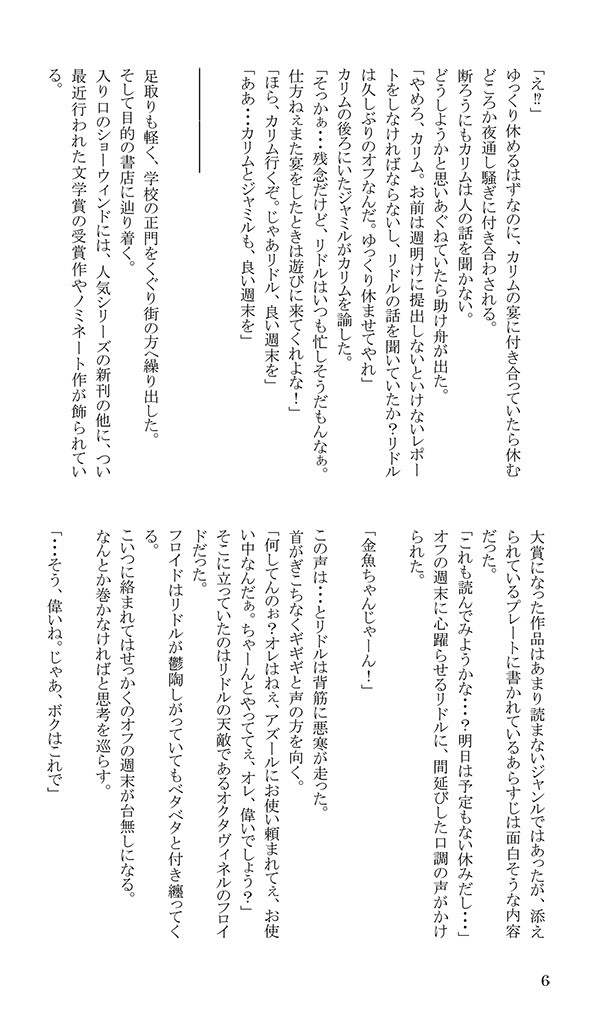 「え⁉」
ゆっくり休めるはずなのに、カリムの宴に付き合っていたら休む
どころか夜通し騒ぎに付き合わされる。
断ろうにもカリムは人の話を聞かない。
どうしようかと思いあぐねていたら助け舟が出た。
「やめろ、カリム。お前は週明けに提出しないといけないレポー
トをしなければならないし、リドルの話を聞いていたか？リドル
は久しぶりのオフなんだ。ゆっくり休ませてやれ」
カリムの後ろにいたジャミルがカリムを諭した。
「そっかぁ・・・残念だけど、リドルはいつも忙しそうだもんなぁ。
仕方ねぇまた宴をしたときは遊びに来てくれよな！」
「ほら、カリム行くぞ。じゃあリドル、良い週末を」
「ああ・・・カリムとジャミルも、良い週末を」
足取りも軽く、学校の正門をくぐり街の方へ繰り出した。
そして目的の書店に辿り着く。
入り口のショーウィンドには、人気シリーズの新刊の他に、つい
最近行われた文学賞の受賞作やノミネート作が飾られてい
る。
大賞になった作品はあまり読まないジャンルではあったが、添え
られているプレートに書かれているあらすじは面白そうな内容
だった。
「これも読んでみようかな・・・？明日は予定もない休みだし・・・」
オフの週末に心躍らせるリドルに、間延びした口調の声がかけ
られた。
「金魚ちゃんじゃーん！」
この声は・・・とリドルは背筋に悪寒が走った。
首がぎこちなくギギギと声の方を向く。
「何してんのぉ？オレはねぇ、アズールにお使い頼まれてぇ、お使
い中なんだぁ。ちゃーんとやっててぇ、オレ、偉いでしょう？」
そこに立っていたのはリドルの天敵であるオクタヴィネルのフロイ
ドだった。
フロイドはリドルが鬱陶しがっていてもベタベタと付き纏ってく
る。
こいつに絡まれてはせっかくのオフの週末が台無しになる。
なんとか巻かなければと思考を巡らす。
「・・・そう、偉いね。じゃあ、ボクはこれで」
6